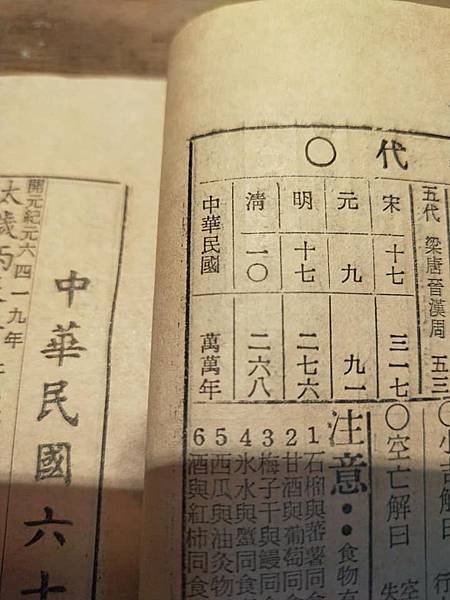 代〇
五代 梁唐晉漢周 五三
宋 十七 三一七
元 九 九一
明 十七 二七六
清 一〇 二六八
中華民國 萬萬年
〇小吉解曰 行
〇空亡解曰 空 失
注意：食物有
1石榴與蕃薯同食
2甘酒與葡萄同食
3梅子干與鰻同食
4氷水與蟹同食
5西瓜與油灸物
6酒與紅柿同食
中華民國六十
開元紀元六四一九年
太歲丙